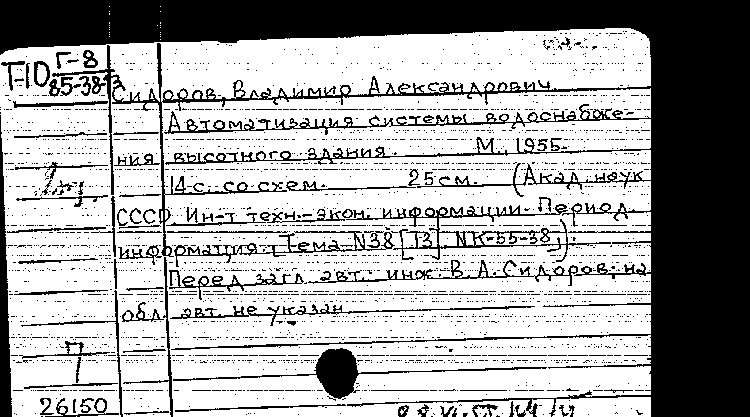 Т-10 Г-8
85-38-53
Сидоров, Владимир Александрович
Автоматизация системы водоснабже-
ния высотного здания. М., 1955.
14 с. со схем. 25 см. (Акад. наук
СССР. Ин-т техн.-экон. информации. Период.
информация. Тема N38 [13] NK-55-38).
Перед загл. авт.: инж. В.А. Сидоров; на
обл. авт. не указан
7
26150